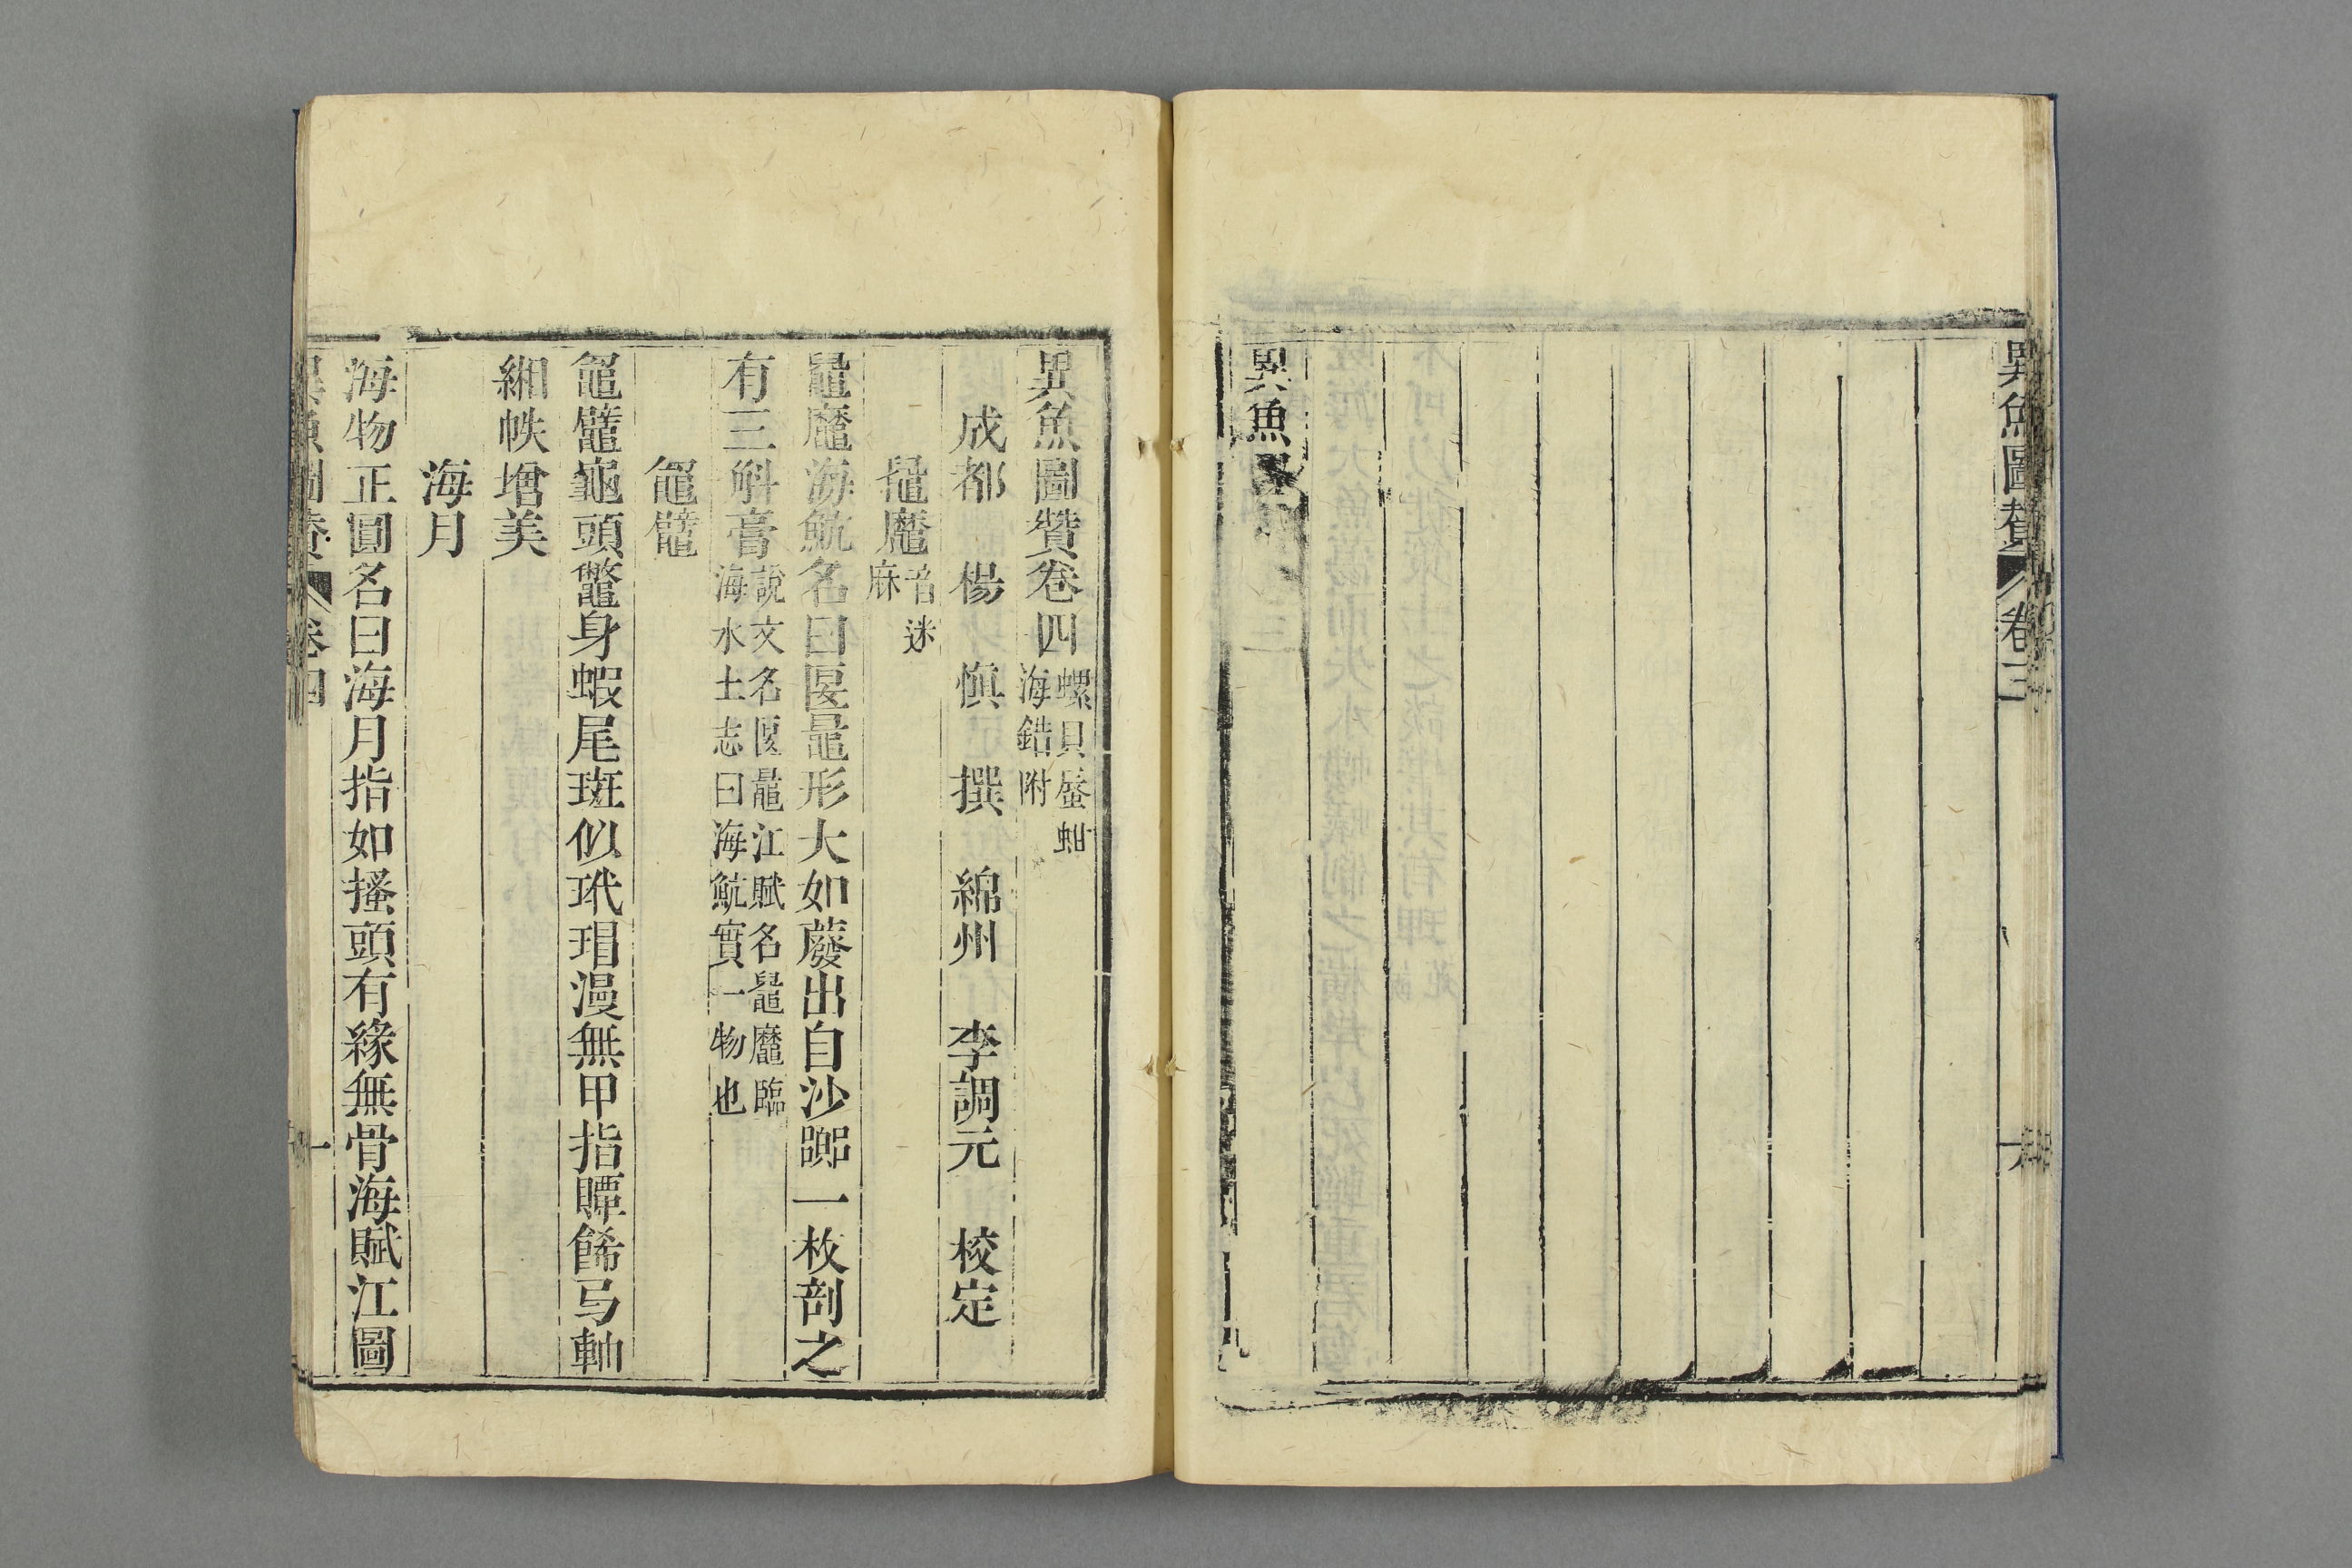 異魚圖贊 卷三 十
異魚
異魚圖贊卷四 螺貝蜃蚶海錯附
成都 楊 慎 撰 綿州 李調元 校定
鼊 音迷麻
海魧名曰匽鼂形大如蕟出自沙鄮一枚剖之
有三斛膏 說文名匽鼂江賦名臨海水土志曰海魧實一物也
𪓟𪓦
龜頭鼈身蝦尾斑似玳瑁漫無甲指臛餙弓軸
緗帙增美
海月
海物正圓名曰海月指如搔頭有緣無骨海賦江圖
異魚圖贊 卷四 一